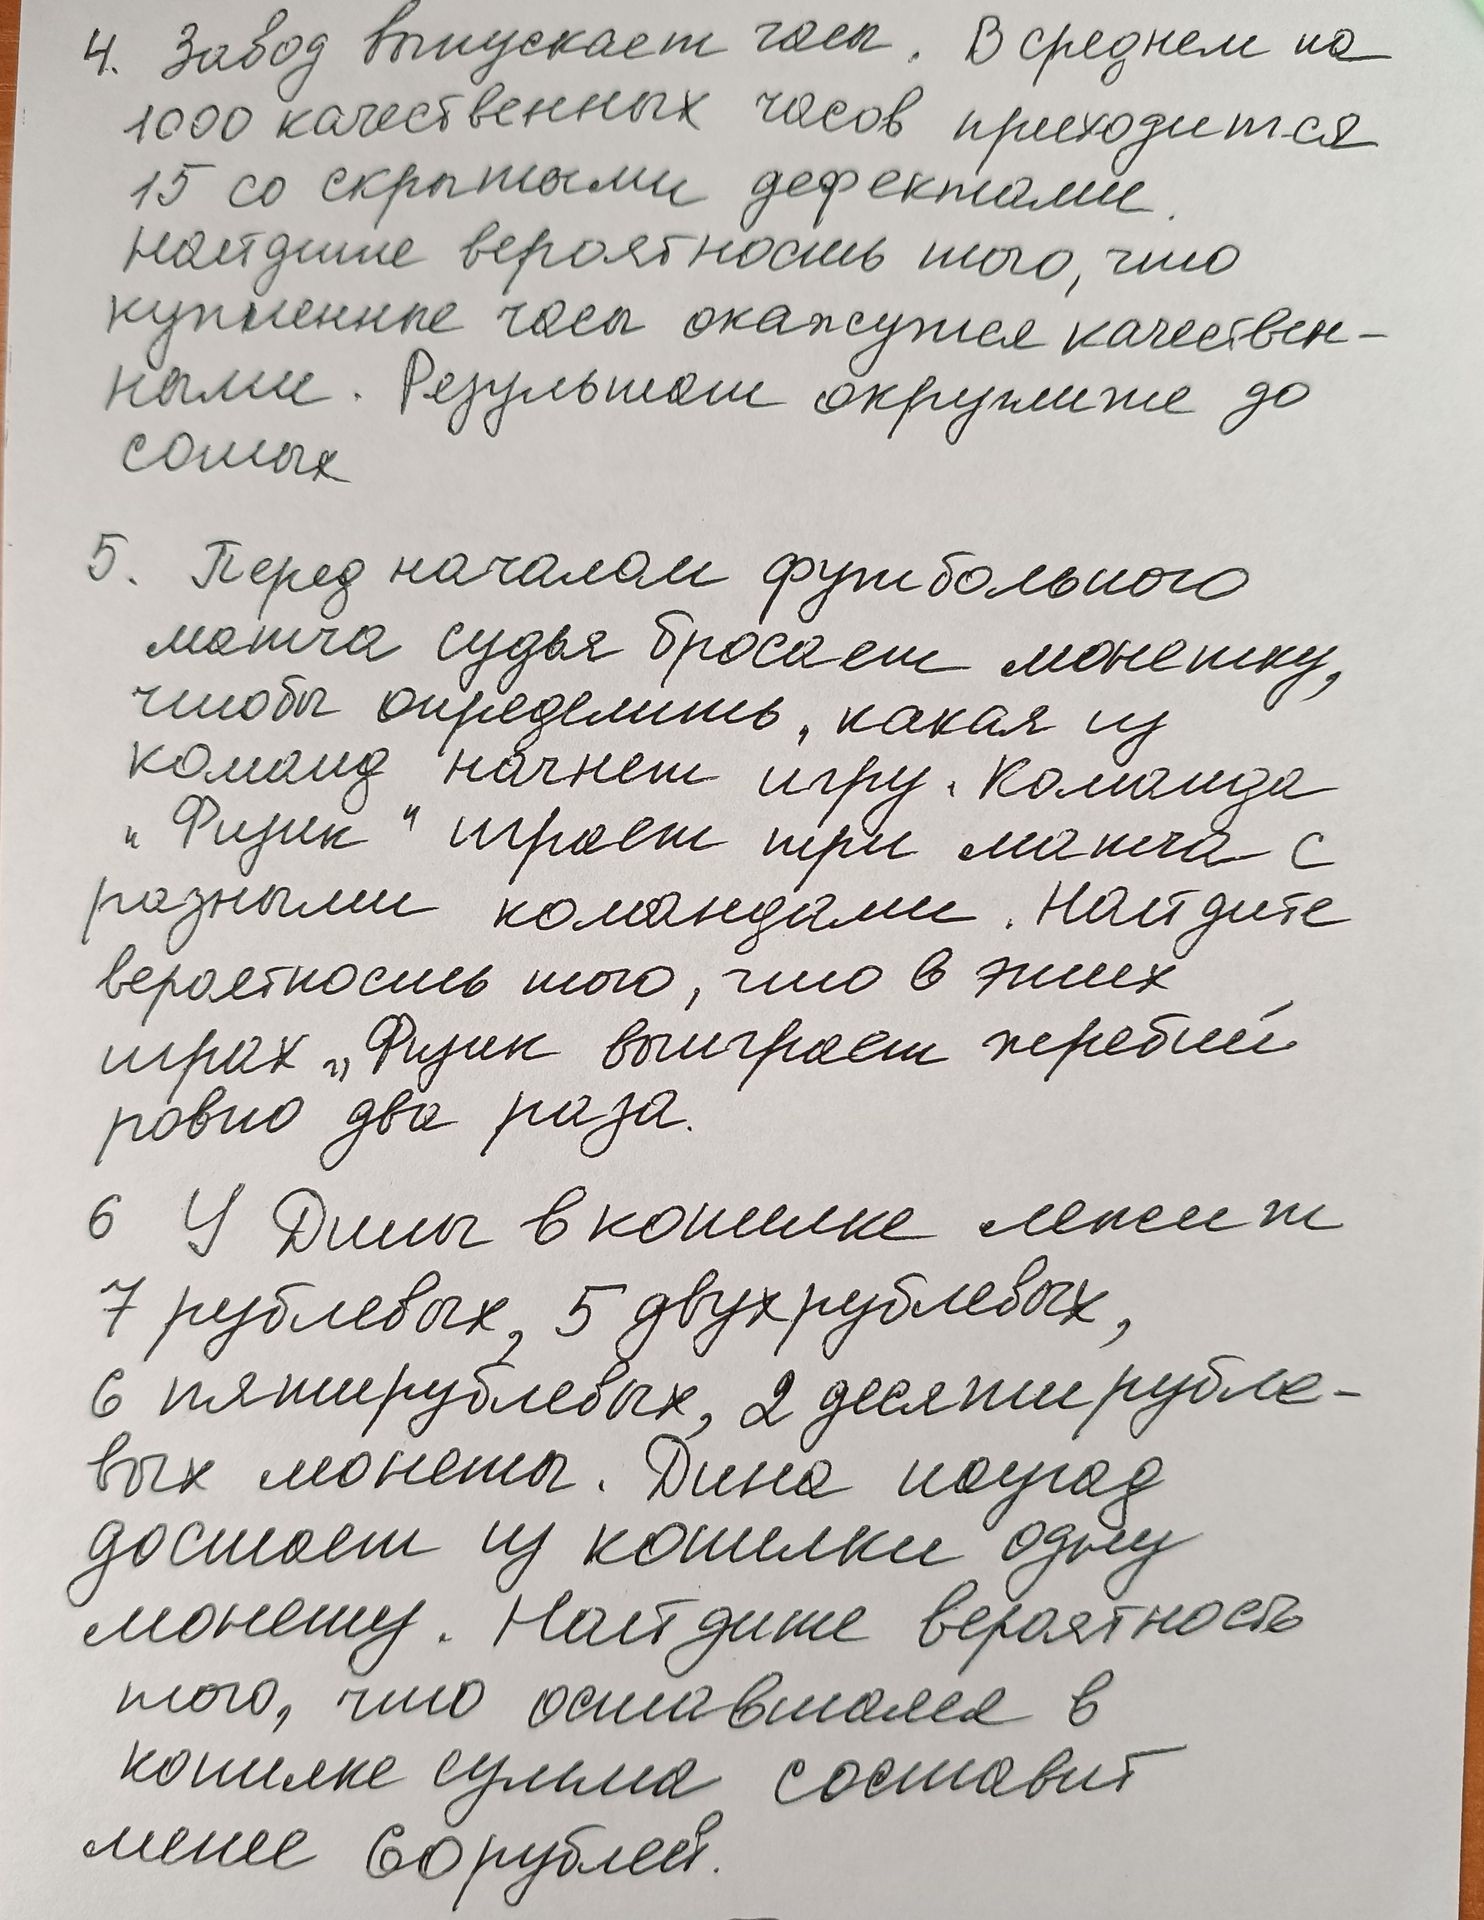 4. Завод выпускает часы. В среднем на
1000 качественных часов приходится
15 со скрытыми дефектами.
Найдите вероятность того, что
купленные часы окажутся качествен-
ными. Результат округлите до
сотых
5. Перед началом футбольного
матча судья бросает монетку,
чтобы определить, какая из
команд начнет игру. Команда
"Физик" играет три матча с
разными командами. Найдите
вероятность того, что в этих
играх „Физик выиграет жребий
ровно два раза.
6 У Дины в копилке лежит
7 рублевых, 5 двухрублевых,
6 пятирублевых, 2 десятирубле-
вых монеты. Дина наугад
достает из копилки одну
монету. Найдите вероятность
того, что оставшаяся в
копилке сумма составит
менее 60 рублей.